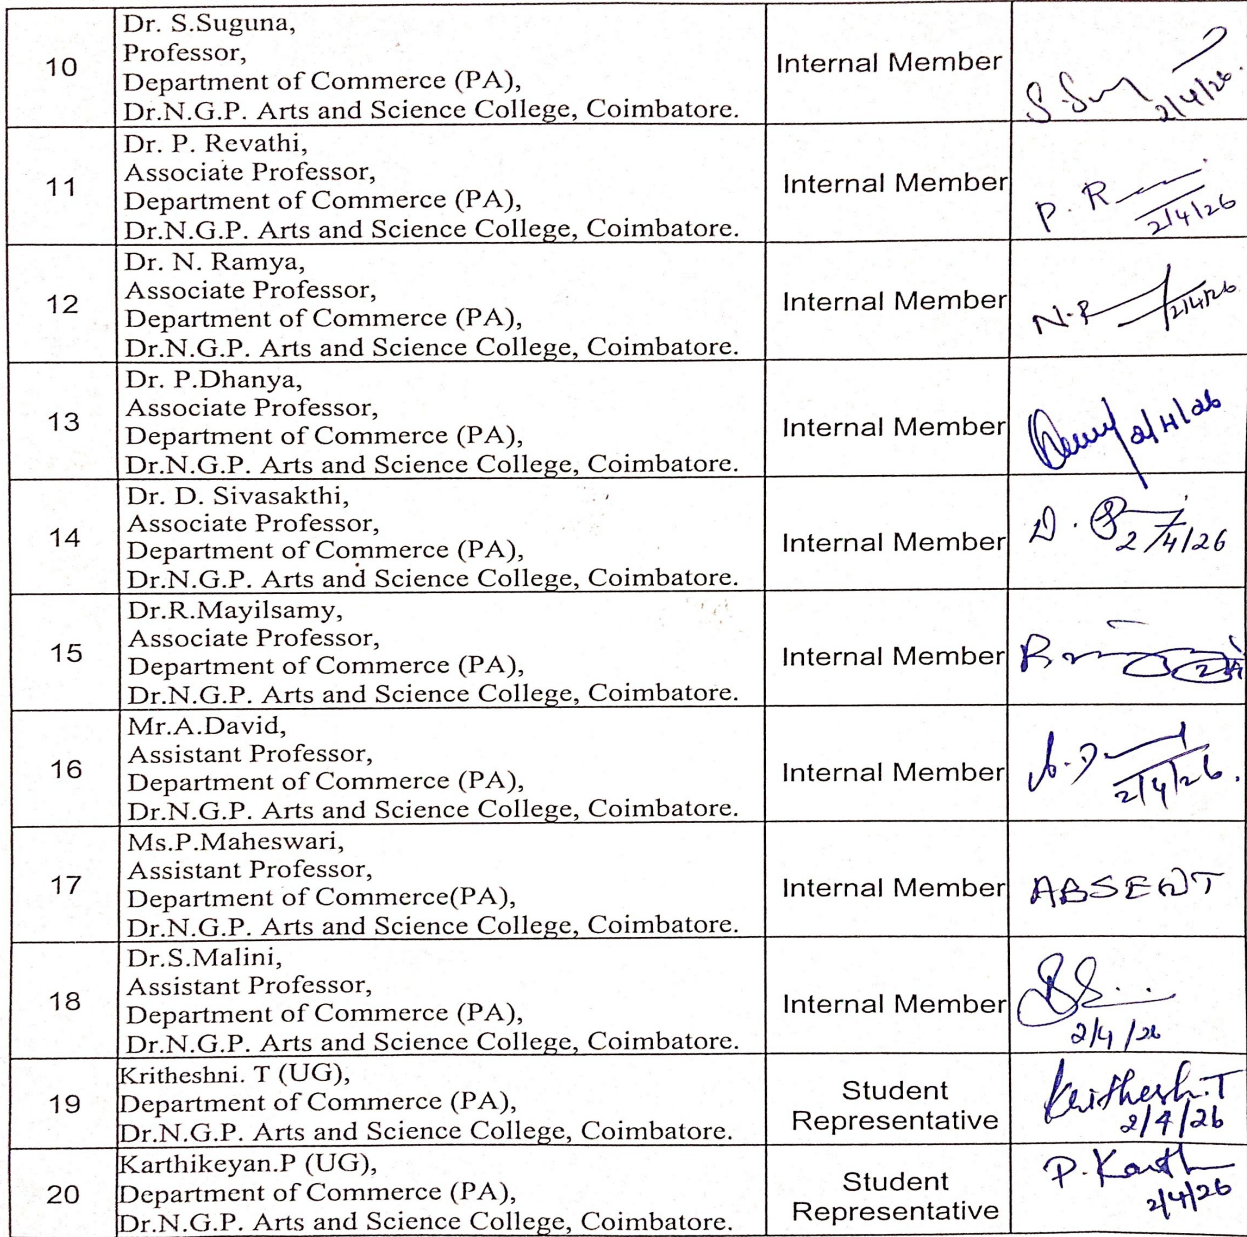 10
Dr. S.Suguna,
Professor,
Department of Commerce (PA),
Dr.N.G.P. Arts and Science College, Coimbatore.
Internal Member
2/4/26.
11
Dr. P. Revathi,
Associate Professor,
Department of Commerce (PA),
Dr.N.G.P. Arts and Science College, Coimbatore.
Internal Member
P. R
2/4/26
12
Dr. N. Ramya,
Associate Professor,
Department of Commerce (PA),
Dr.N.G.P. Arts and Science College, Coimbatore.
Internal Member
N.R
2/4/26
13
Dr. P.Dhanya,
Associate Professor,
Department of Commerce (PA),
Dr.N.G.P. Arts and Science College, Coimbatore.
Internal Member
2/4/26
14
Dr. D. Sivasakthi,
Associate Professor,
Department of Commerce (PA),
Dr.N.G.P. Arts and Science College, Coimbatore.
Internal Member
D.
2/4/26
15
Dr.R.Mayilsamy,
Associate Professor,
Department of Commerce (PA),
Dr.N.G.P. Arts and Science College, Coimbatore.
Internal Member
16
Mr.A.David,
Assistant Professor,
Department of Commerce (PA),
Dr.N.G.P. Arts and Science College, Coimbatore.
Internal Member
A.D
2/4/26.
17
Ms.P.Maheswari,
Assistant Professor,
Department of Commerce(PA),
Dr.N.G.P. Arts and Science College, Coimbatore.
Internal Member
ABSENT
18
Dr.S.Malini,
Assistant Professor,
Department of Commerce (PA),
Dr.N.G.P. Arts and Science College, Coimbatore.
Internal Member
2/4/26
19
Kritheshni. T (UG),
Department of Commerce (PA),
Dr.N.G.P. Arts and Science College, Coimbatore.
Student
Representative
2/4/26
20
Karthikeyan.P (UG),
Department of Commerce (PA),
Dr.N.G.P. Arts and Science College, Coimbatore.
Student
Representative
P. Karth
2/4/26